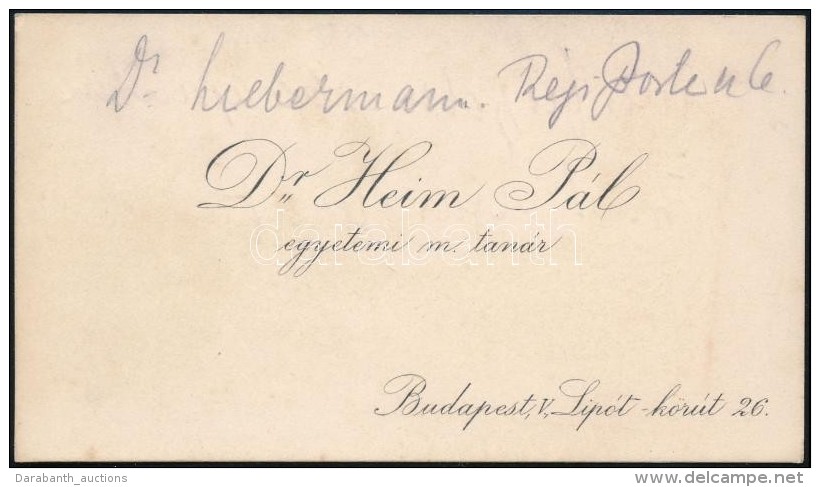 Dr. Liebermann. Régi posta u 6.
Dr. Heim Pál
egyetemi m. tanár
darabanth
Budapest, V, Lipót-körút 26.
Darabanth_auctions
www.delcampe.net